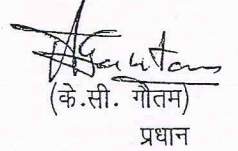 (के.सी. गौतम)
प्रधान